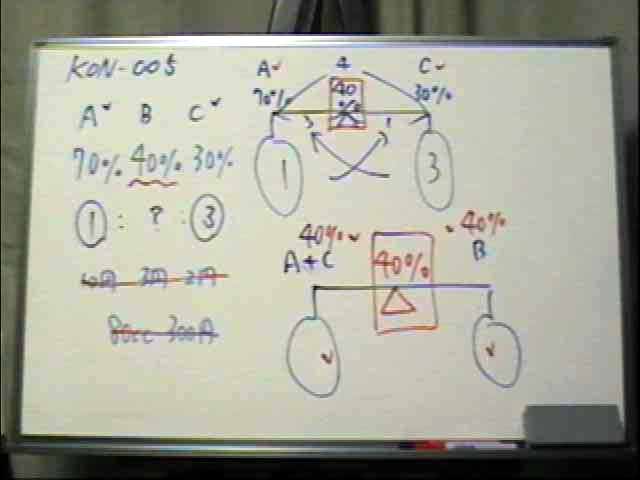 KON-005
A B C
70% 40% 30%
1 : ? : 3
80cc 300円
A 4 C
70% 40% 30%
3 1
1 3
40% 40%
A+C 40% B